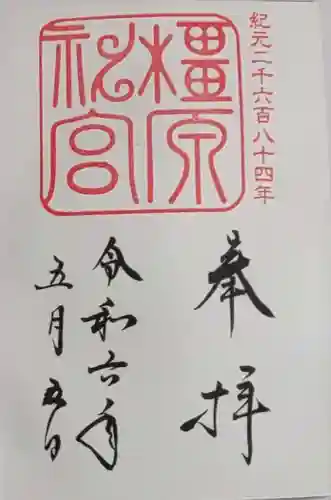 紀元二千六百八十四年
橿原
神宮
奉拝
令和六年
五月五日